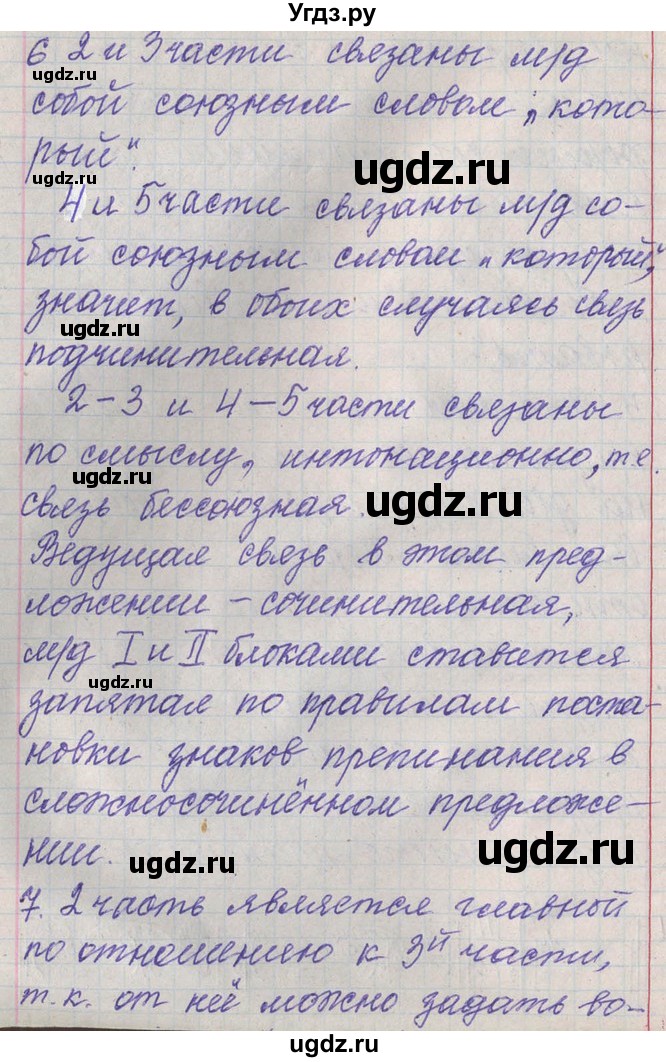 Угдз.ру
6 2 и 3 части связаны м/д
собой союзным словом „кото-
рый“.
ugdz.ru
4 и 5 части связаны м/д со-
бой союзным словом „который“,
ugdz.ru
значет, в обоих случаясь связь
ugdz.ru
подчинительная.
ugdz.ru
2-3 и 4-5 части связаны
по смыслу, интонационно, т.е.
ugdz.ru
связь бессоюзная.
ugdz.ru
Ведущая связь в этом пред-
ложении - сочинительная,
м/д I и II блоками ставится
ugdz.ru
запятая по правилам поста-
новки знаков препинания в
сложносочинённом предложе-
ugdz.ru
нии.
ugdz.ru
7. 2 часть является главной
по отношению к 3й части,
ugdz.ru
т.к. от неё можно задать во-
Угдз.ру